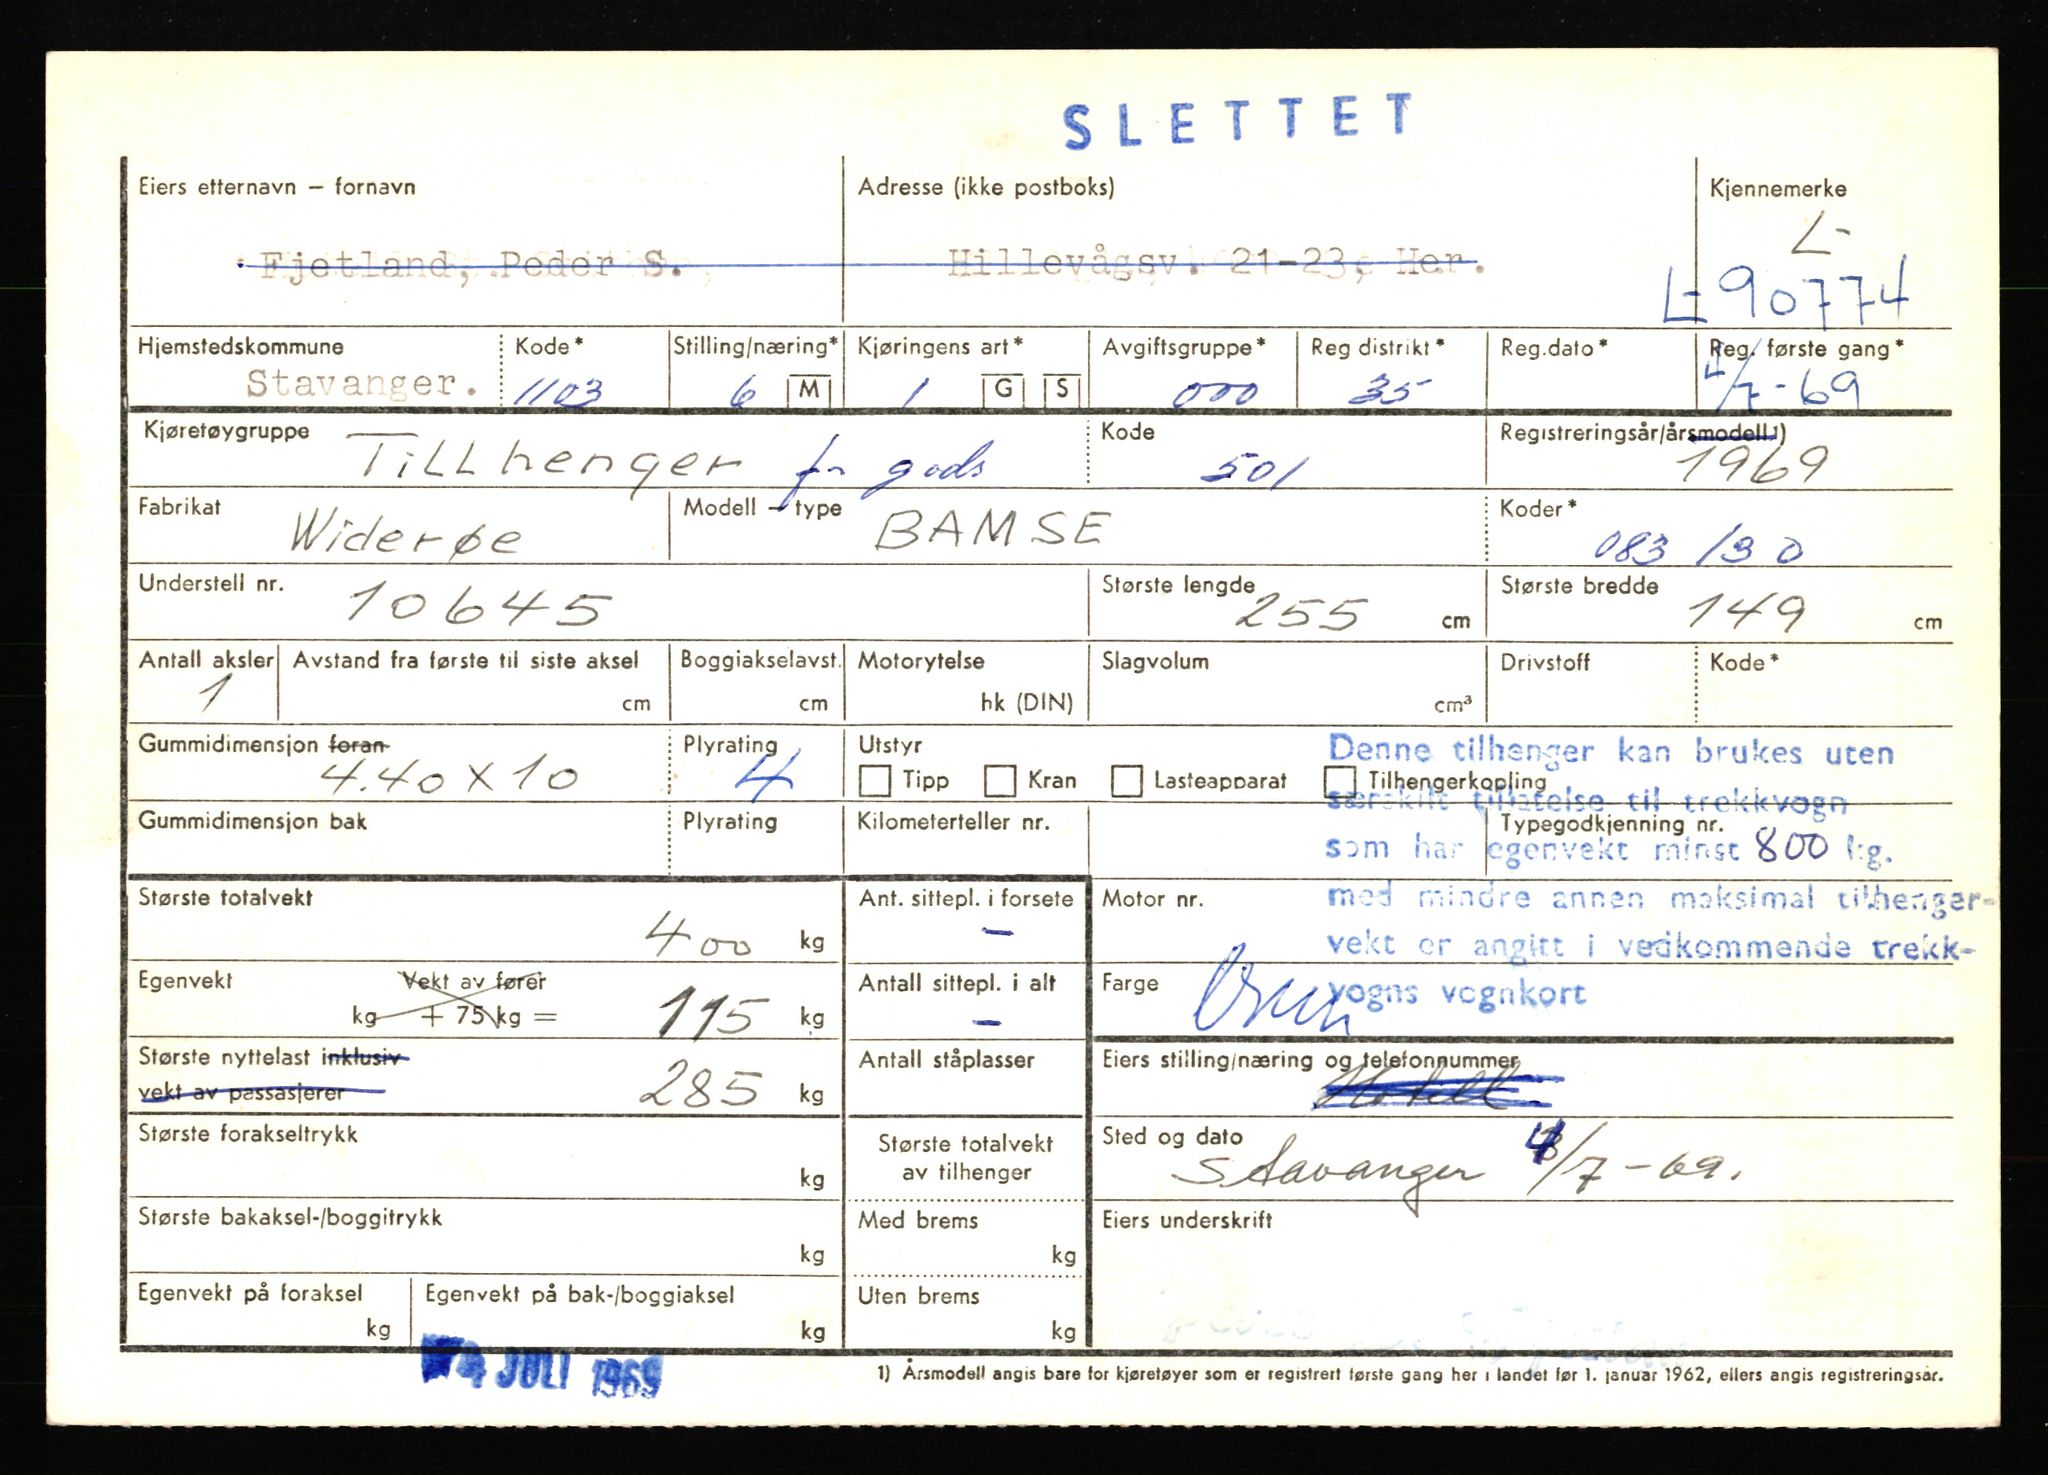 SLETTET
Eiers etternavn – fornavn
Adresse (ikke postboks)
Kjennemerke
L-
Fjetland, Peder S.
Hillevågsv. 21-23, Her.
L-90774
Hjemstedskommune
Kode*
Stilling/næring*
Kjøringens art*
Avgiftsgruppe*
Reg distrikt*
Reg.dato*
Reg. første gang*
Stavanger.
1103
6 M
1 G S
000
35
4/7-69
Kjøretøygruppe
TiLLhenger for gods
Kode
501
Registreringsår/årsmodell 1)
1969
Fabrikat
Widerøe
Modell – type
BAMSE
Koder*
083 /30
Understell nr.
10645
Største lengde
255 cm
Største bredde
149 cm
Antall aksler
1
Avstand fra første til siste aksel
cm
Boggiakselavst.
cm
Motorytelse
hk (DIN)
Slagvolum
cm³
Drivstoff
Kode*
Gummidimensjon foran
4.40 X 10
Plyrating
4
Utstyr
Tipp
Kran
Lasteapparat
Tilhengerkopling
Denne tilhenger kan brukes uten
særskilt tillatelse til trekkvogn
som har egenvekt minst 800 kg.
med mindre annen maksimal tilhenger-
vekt er angitt i vedkommende trekk-
vogns vognkort
Gummidimensjon bak
Plyrating
Kilometerteller nr.
Typegodkjenning nr.
Største totalvekt
400 kg
Ant. sittepl. i forsete
–
Motor nr.
Egenvekt
Vekt av fører
kg + 75 kg =
115 kg
Antall sittepl. i alt
–
Farge
Største nyttelast inklusiv
vekt av passasjerer
285 kg
Antall ståplasser
Eiers stilling/næring og telefonnummer
Hotell
Største forakseltrykk
kg
Største totalvekt
av tilhenger
Sted og dato
Stavanger 4/7-69.
Største bakaksel-/boggitrykk
kg
Med brems
kg
Eiers underskrift
Egenvekt på foraksel
kg
Egenvekt på bak-/boggiaksel
kg
Uten brems
kg
4 JULI 1969
1) Årsmodell angis bare for kjøretøyer som er registrert første gang her i landet før 1. januar 1962, ellers angis registreringsår.